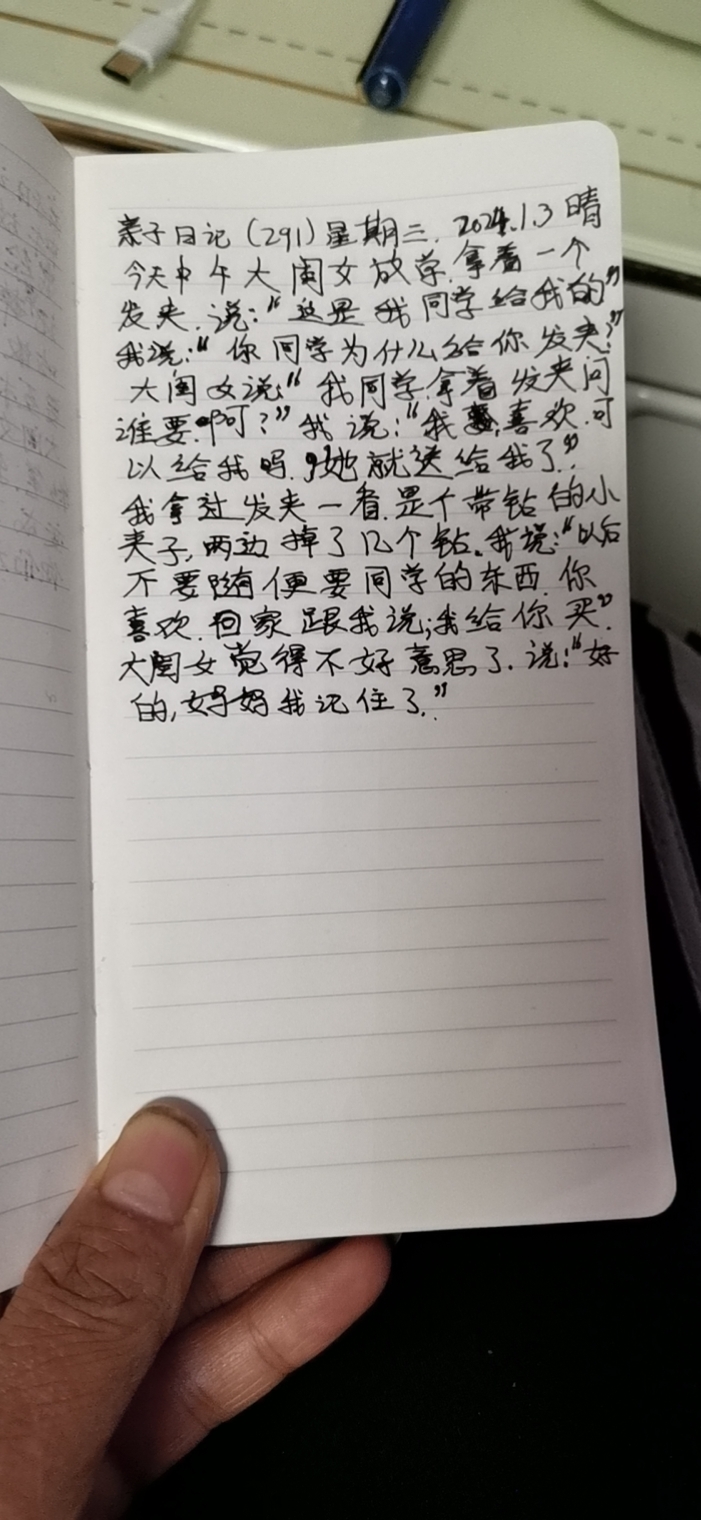 亲子日记（291）星期三. 2024.1.3 晴
今天中午大闺女放学.拿着一个
发夹.说:“这是我同学给我的”
我说:“你同学为什么给你发夹?”
大闺女说:“我同学.拿着发夹问
谁要.啊?”我说:“我喜欢.可
以给我吗.”她就送给我了.”
我拿过发夹一看.是个带钻的小
夹子,两边掉了几个钻。我说:“以后
不要随便要同学的东西.你
喜欢.回家跟我说;我给你买”.
大闺女觉得不好意思了.说:“好
的,妈妈我记住了.”